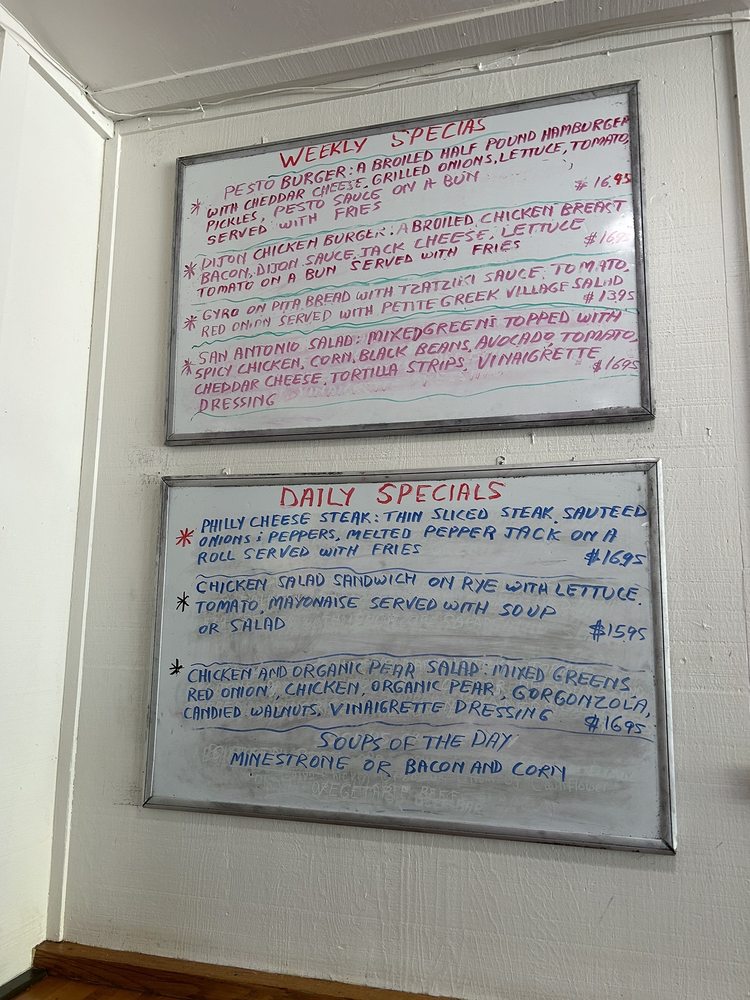 WEEKLY SPECIAS
PESTO BURGER: A BROILED HALF POUND HAMBURGER
* WITH CHEDDAR CHEESE, GRILLED ONIONS, LETTUCE, TOMATO,
PICKLES, PESTO SAUCE ON A BUN $16.95
SERVED WITH FRIES
* DIJON CHICKEN BURGER: A BROILED CHICKEN BREAST
BACON, DIJON SAUCE, JACK CHEESE, LETTUCE
TOMATO ON A BUN SERVED WITH FRIES
* GYRO ON PITA BREAD WITH TZATZIKI SAUCE, TOMATO,
RED ONION SERVED WITH PETITE GREEK VILLAGE SALAD
$1395
* SAN ANTONIO SALAD: MIXED GREENS TOPPED WITH
SPICY CHICKEN, CORN, BLACK BEANS, AVOCADO, TOMATO,
CHEDDAR CHEESE, TORTILLA STRIPS, VINAIGRETTE $1695
DRESSING
DAILY SPECIALS
* PHILLY CHEESE STEAK: THIN SLICED STEAK, SAUTEED
ONIONS & PEPPERS, MELTED PEPPER JACK ON A
ROLL SERVED WITH FRIES $1695
CHICKEN SALAD SANDWICH ON RYE WITH LETTUCE,
* TOMATO, MAYONAISE SERVED WITH SOUP
OR SALAD $1595
* CHICKEN AND ORGANIC PEAR SALAD: MIXED GREENS
RED ONION, CHICKEN, ORGANIC PEAR, GORGONZOLA,
CANDIED WALNUTS, VINAIGRETTE DRESSING $1695
SOUPS OF THE DAY
MINESTRONE OR BACON AND CORN